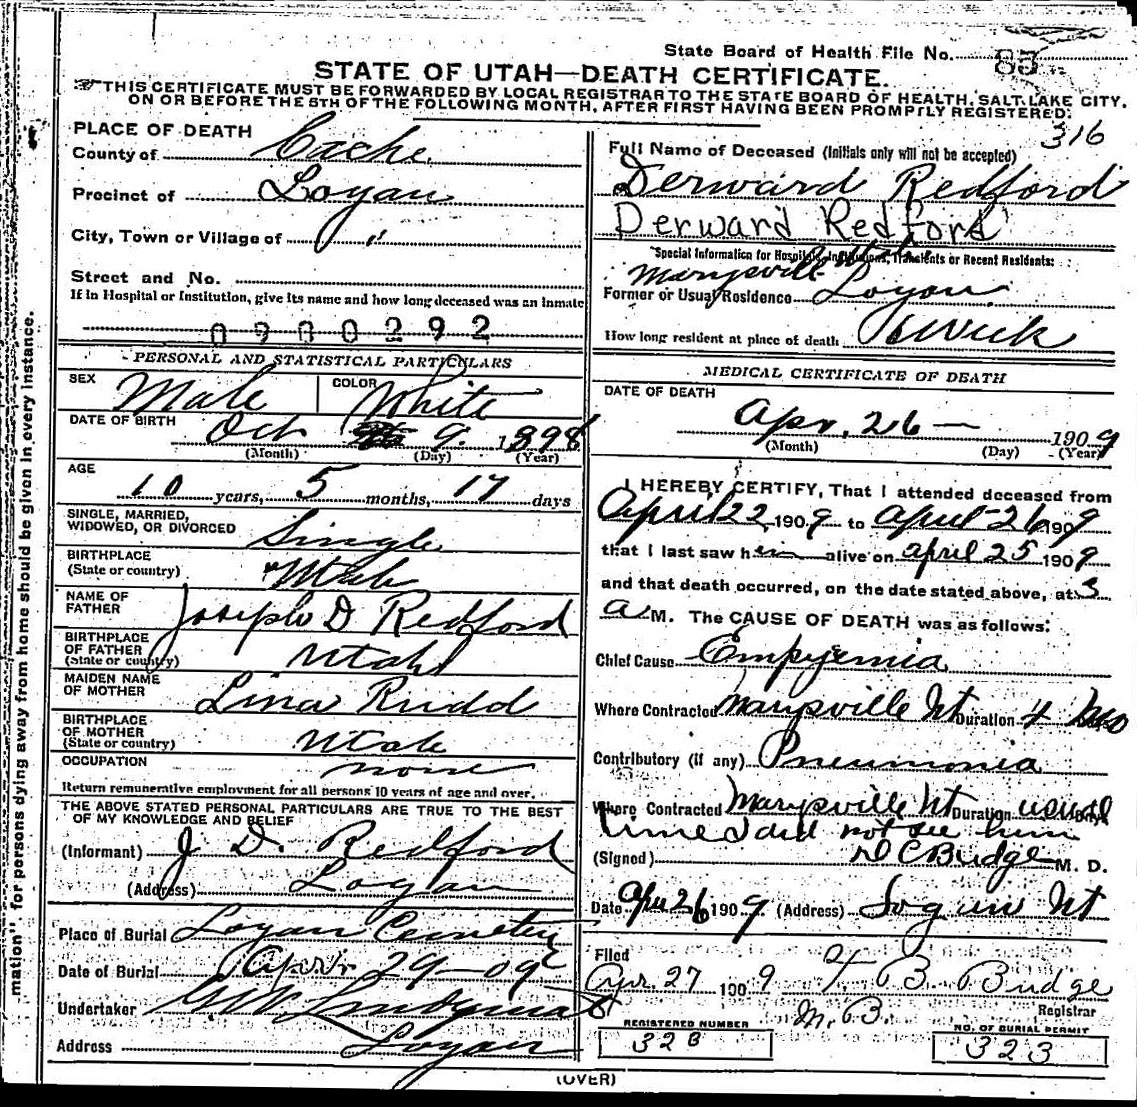 State Board of Health File No. 85
STATE OF UTAH—DEATH CERTIFICATE.
THIS CERTIFICATE MUST BE FORWARDED BY LOCAL REGISTRAR TO THE STATE BOARD OF HEALTH, SALT LAKE CITY,
ON OR BEFORE THE 5TH OF THE FOLLOWING MONTH, AFTER FIRST HAVING BEEN PROMPTLY REGISTERED.
316
PLACE OF DEATH
County of Cache
Precinct of Logan
City, Town or Village of "
Street and No.
If in Hospital or Institution, give its name and how long deceased was an inmate
0900292
PERSONAL AND STATISTICAL PARTICULARS
SEX Male COLOR White
DATE OF BIRTH Oct 9 1898
(Month) (Day) (Year)
AGE
10 years, 5 months, 17 days
SINGLE, MARRIED,
WIDOWED, OR DIVORCED Single
BIRTHPLACE
(State or country) Utah
NAME OF
FATHER Joseph D Redford
BIRTHPLACE
OF FATHER
(State or country) Utah
MAIDEN NAME
OF MOTHER Lina Rudd
BIRTHPLACE
OF MOTHER
(State or country) Utah
OCCUPATION none
Return remunerative employment for all persons 10 years of age and over.
THE ABOVE STATED PERSONAL PARTICULARS ARE TRUE TO THE BEST
OF MY KNOWLEDGE AND BELIEF
(Informant) J D. Redford
(Address) Logan
Place of Burial Logan Cemetery
Date of Burial Apr 29-09
Undertaker
Address Logan
Full Name of Deceased (Initials only will not be accepted)
Derward Redford
Derward Redford
Special Information for Hospitals, Institutions, Transients or Recent Residents:
Marysville
Former or Usual Residence Logan
How long resident at place of death Week
MEDICAL CERTIFICATE OF DEATH
DATE OF DEATH
Apr. 26 — 1909
(Month) (Day) (Year)
I HEREBY CERTIFY, That I attended deceased from
April 22 1909 to April 26 1909
that I last saw him alive on april 25 1909
and that death occurred, on the date stated above, at 3
a M. The CAUSE OF DEATH was as follows:
Chief Cause Empyemia
Where Contracted Marysville Ut Duration 4
Contributory (if any) Pneumonia
Where Contracted Marysville Ut Duration usual
time I did not see him
(Signed) D C Budge M. D.
Date Apr 26 1909 (Address) Logan Ut
Filed
Apr. 27 1909 B. Budge
M.B. Registrar
REGISTERED NUMBER
328
NO. OF BURIAL PERMIT
323
(OVER)
mation" for persons dying away from home should be given in every instance.